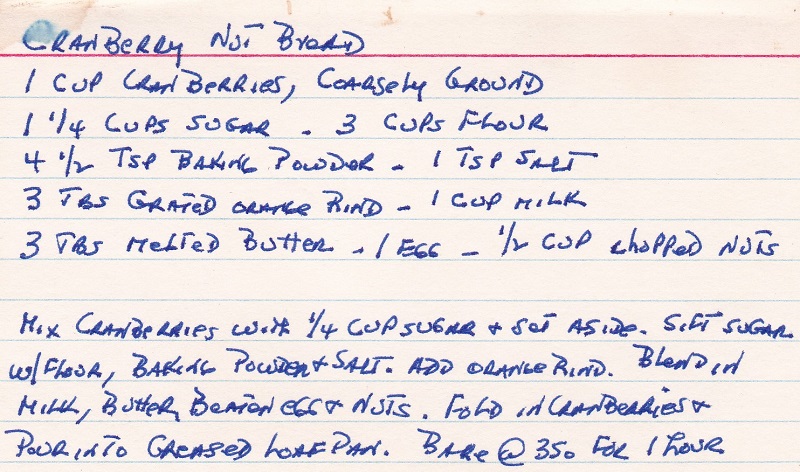 Cranberry Nut Bread
1 Cup Cranberries, Coarsely Ground
1 1/4 Cups Sugar - 3 Cups Flour
4 1/2 Tsp Baking Powder - 1 Tsp Salt
3 Tbs Grated Orange Rind - 1 Cup Milk
3 Tbs Melted Butter - 1 Egg - 1/2 Cup Chopped Nuts
Mix Cranberries with 1/4 Cup Sugar & Set Aside. Sift Sugar
w/ Flour, Baking Powder & Salt. Add Orange Rind. Blend in
Milk, Butter, Beaten Egg & Nuts. Fold in Cranberries &
Pour into Greased Loaf Pan. Bake @ 350 for 1 Hour